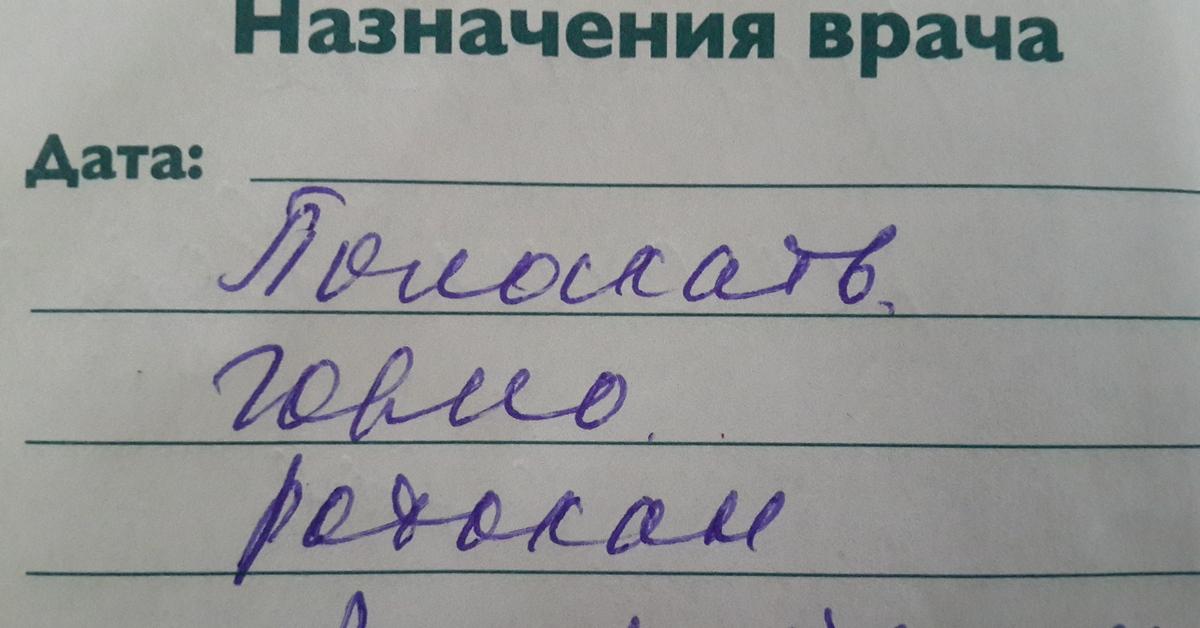 Назначения врача
Дата:
Полоскать
горло
ротокан